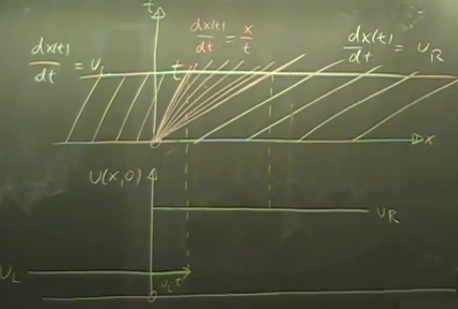 t
dx(t)/dt = u_L
dx(t)/dt = x/t
dx(t)/dt = u_R
t
x
u(x,0)
u_R
u_L
u_L t
0